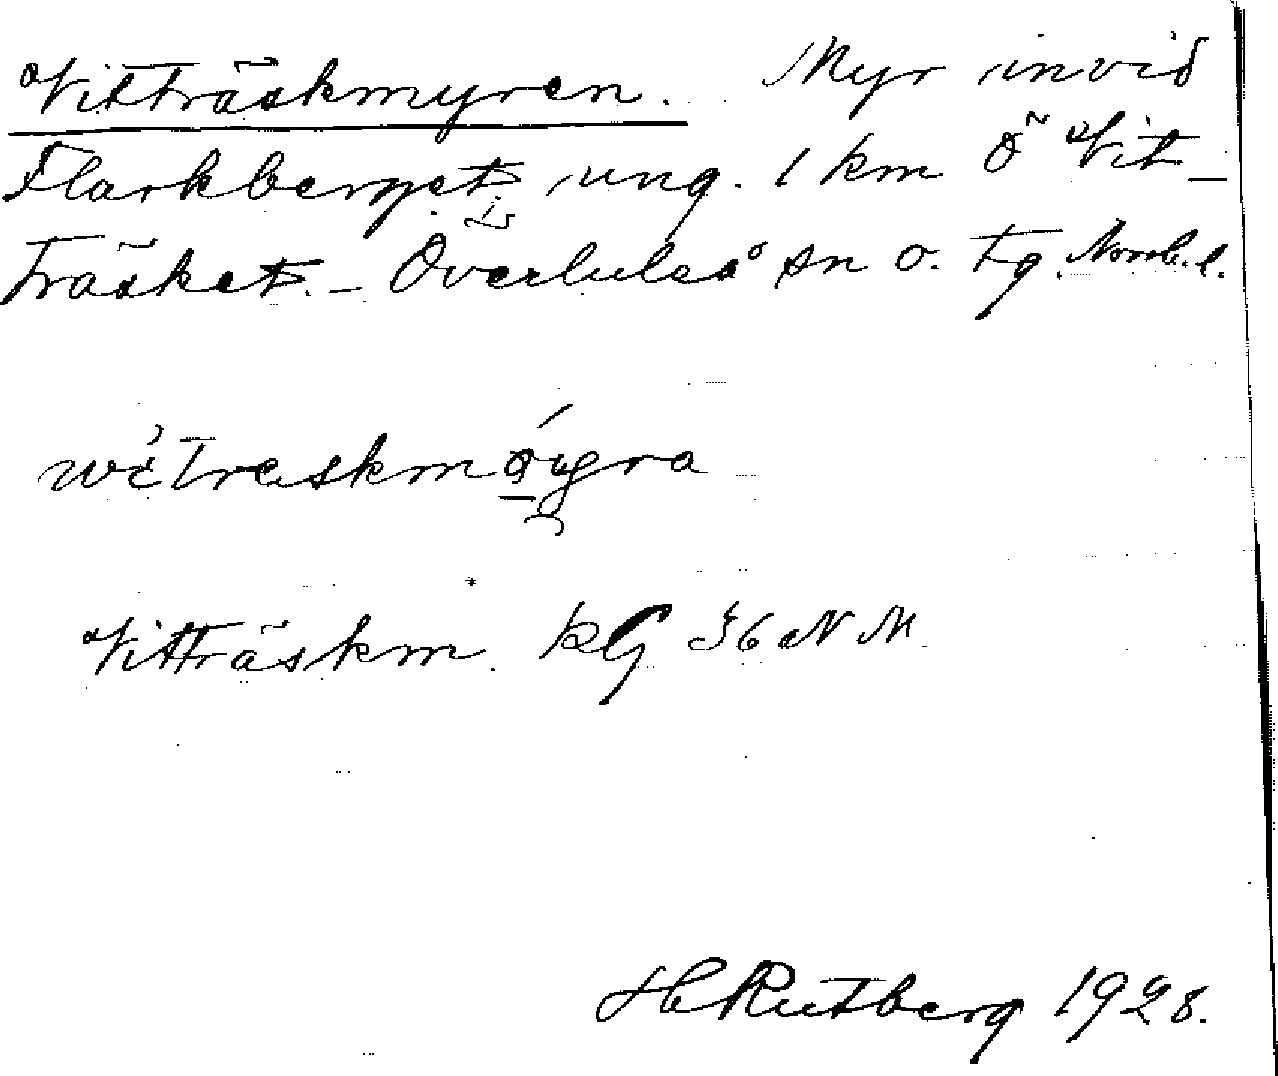 Vitträskmyren. Myr invid
Flarkberget, ung. 1 km Ö Vit-
träsket. - Överluleå sn o. tg. Norrb. l.
Vitträskm. KG 36 NM
H Rutberg 1928.